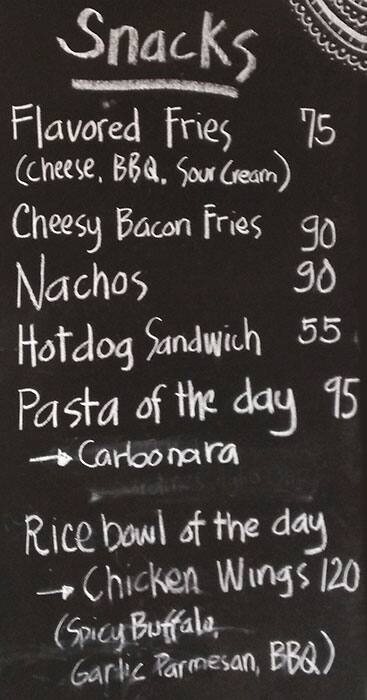 Snacks
Flavored Fries 75
(Cheese, BBQ, Sour Cream)
Cheesy Bacon Fries 90
Nachos 90
Hotdog Sandwich 55
Pasta of the day 95
→ Carbonara
Rice bowl of the day
→ Chicken Wings 120
(Spicy Buffalo,
Garlic Parmesan, BBQ)